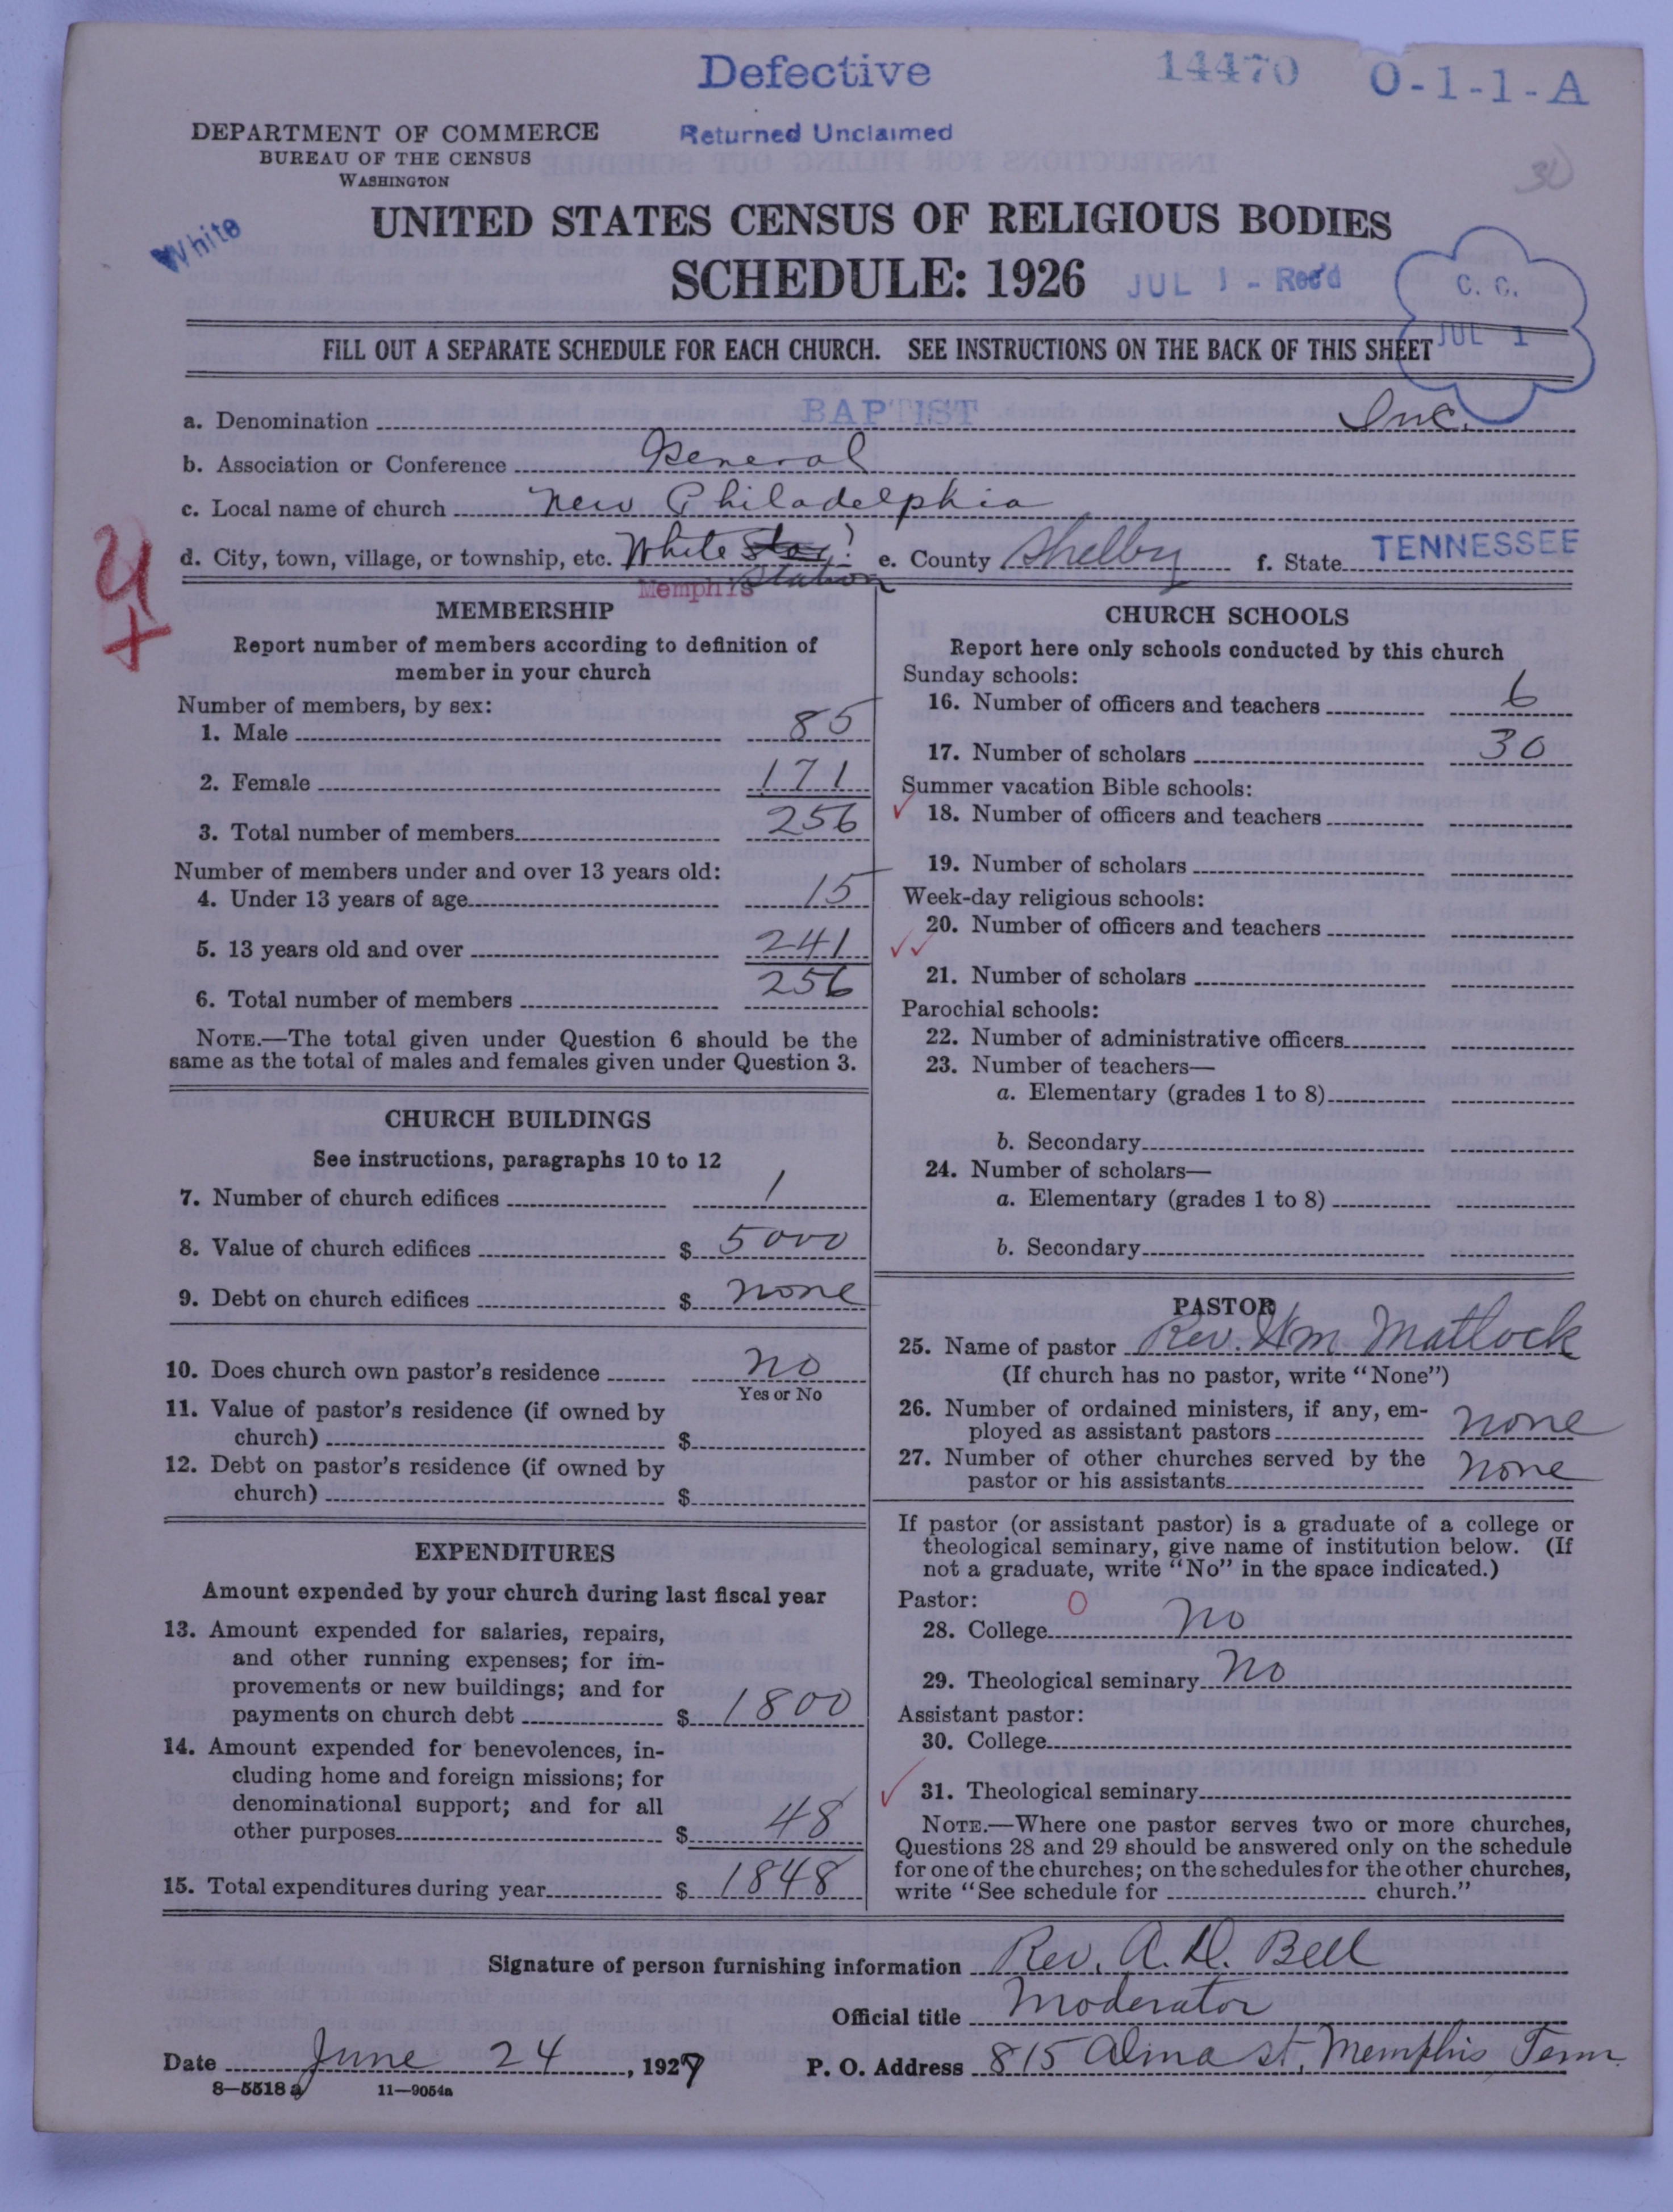 Defective
14470
O-1-1-A
DEPARTMENT OF COMMERCE
BUREAU OF THE CENSUS
WASHINGTON
Returned Unclaimed
30
White
UNITED STATES CENSUS OF RELIGIOUS BODIES
SCHEDULE: 1926
JUL 1 - Rec'd
C. C.
JUL 1
FILL OUT A SEPARATE SCHEDULE FOR EACH CHURCH. SEE INSTRUCTIONS ON THE BACK OF THIS SHEET
a. Denomination BAPTIST Inc.
b. Association or Conference General
c. Local name of church New Philadelphia
d. City, town, village, or township, etc. White Star? Station
Memphis
e. County Shelby f. State TENNESSEE
MEMBERSHIP
Report number of members according to definition of
member in your church
Number of members, by sex:
1. Male 85
2. Female 171
3. Total number of members 256
Number of members under and over 13 years old:
4. Under 13 years of age 15
5. 13 years old and over 241
6. Total number of members 256
NOTE.—The total given under Question 6 should be the
same as the total of males and females given under Question 3.
CHURCH BUILDINGS
See instructions, paragraphs 10 to 12
7. Number of church edifices 1
8. Value of church edifices $ 5000
9. Debt on church edifices $ none
10. Does church own pastor's residence no
Yes or No
11. Value of pastor's residence (if owned by
church) $
12. Debt on pastor's residence (if owned by
church) $
EXPENDITURES
Amount expended by your church during last fiscal year
13. Amount expended for salaries, repairs,
and other running expenses; for im-
provements or new buildings; and for
payments on church debt $ 1800
14. Amount expended for benevolences, in-
cluding home and foreign missions; for
denominational support; and for all
other purposes $ 48
15. Total expenditures during year $ 1848
CHURCH SCHOOLS
Report here only schools conducted by this church
Sunday schools:
16. Number of officers and teachers 6
17. Number of scholars 30
Summer vacation Bible schools:
18. Number of officers and teachers
19. Number of scholars
Week-day religious schools:
20. Number of officers and teachers
21. Number of scholars
Parochial schools:
22. Number of administrative officers
23. Number of teachers—
a. Elementary (grades 1 to 8)
b. Secondary
24. Number of scholars—
a. Elementary (grades 1 to 8)
b. Secondary
PASTOR
25. Name of pastor Rev. Wm. Matlock
(If church has no pastor, write "None")
26. Number of ordained ministers, if any, em-
ployed as assistant pastors none
27. Number of other churches served by the
pastor or his assistants none
If pastor (or assistant pastor) is a graduate of a college or
theological seminary, give name of institution below. (If
not a graduate, write "No" in the space indicated.)
Pastor: 0
28. College No
29. Theological seminary No
Assistant pastor:
30. College
31. Theological seminary
NOTE.—Where one pastor serves two or more churches,
Questions 28 and 29 should be answered only on the schedule
for one of the churches; on the schedules for the other churches,
write "See schedule for church."
Signature of person furnishing information Rev. A. D. Bell
Official title Moderator
Date June 24, 1927 P. O. Address 815 Alma st, Memphis, Tenn
8—5518a 11—9054a